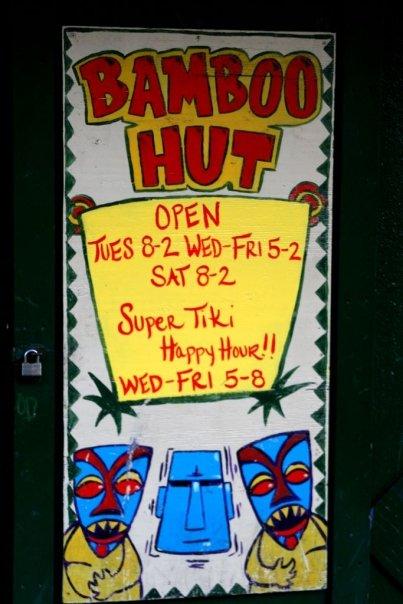 BAMBOO
HUT
OPEN
TUES 8-2 WED-FRI 5-2
SAT 8-2
SUPER TIKI
HAPPY HOUR!!
WED-FRI 5-8